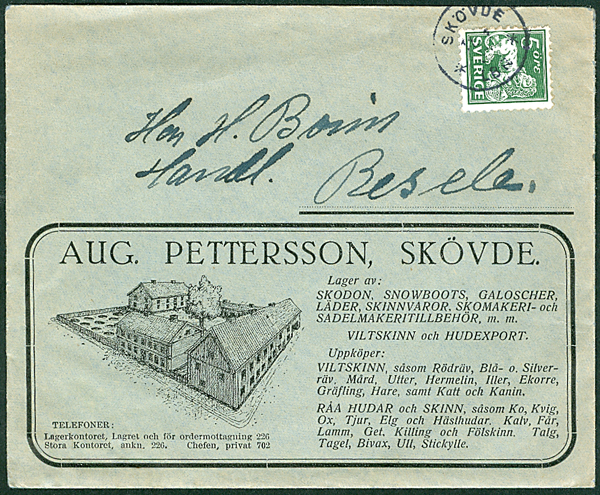 SKÖVDE
5 ÖRE
SVERIGE
H.
Handl.
AUG. PETTERSSON, SKÖVDE.
Lager av:
SKODON, SNOWBOOTS, GALOSCHER,
LÄDER, SKINNVAROR, SKOMAKERI- och
SADELMAKERITILLBEHÖR, m. m.
VILTSKINN och HUDEXPORT.
Uppköper:
VILTSKINN, såsom Rödräv, Blå- o. Silver-
räv, Mård, Utter, Hermelin, Iller, Ekorre,
Gräfling, Hare, samt Katt och Kanin.
RÅA HUDAR och SKINN, såsom Ko, Kvig,
Ox, Tjur, Elg och Hästhudar. Kalv, Får,
Lamm, Get, Killing och Fölskinn. Talg,
Tagel, Bivax, Ull, Stickylle.
TELEFONER:
Lagerkontoret, Lagret och för ordermottagning 226
Stora Kontoret, ankn. 226. Chefen, privat 702